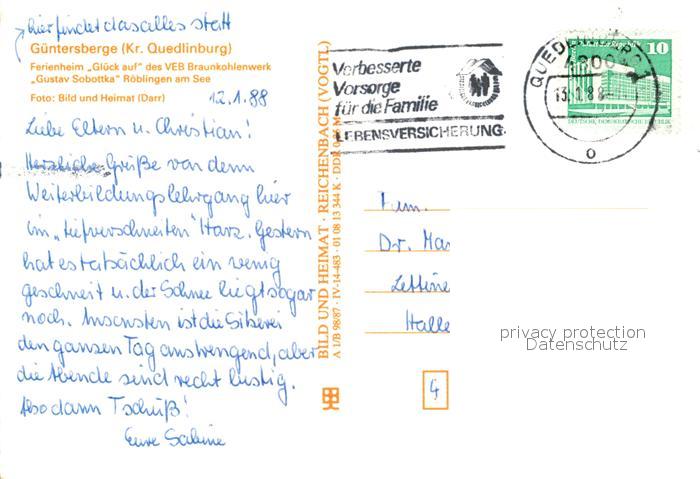 hier findet das alles statt
Güntersberge (Kr. Quedlinburg)
Ferienheim „Glück auf" des VEB Braunkohlenwerk
„Gustav Sobottka" Röblingen am See
Foto: Bild und Heimat (Darr)
12.1.88
Liebe Eltern u. Christian!
Herzliche Grüße von dem
Weiterbildungslehrgang hier
im „tiefverschneiten" Harz. Gestern
hat es tatsächlich ein wenig
geschneit u. der Schnee liegt sogar
noch. Ansonsten ist die Sitzerei
den ganzen Tag anstrengend, aber
die Abende sind recht lustig.
Also dann Tschüß!
Eure Sabine
BILD UND HEIMAT · REICHENBACH (VOGTL)
A 1/B 98/87 · IV-14-483 · 01 08 13 344 K · DDR
Verbesserte
Vorsorge
für die Familie
LEBENSVERSICHERUNG
QUEDLINBURG 1
4300
13.1.88
10
DEUTSCHE DEMOKRATISCHE REPUBLIK
Fam.
Dr. Ma
Lettine
Halle
4
privacy protection
Datenschutz